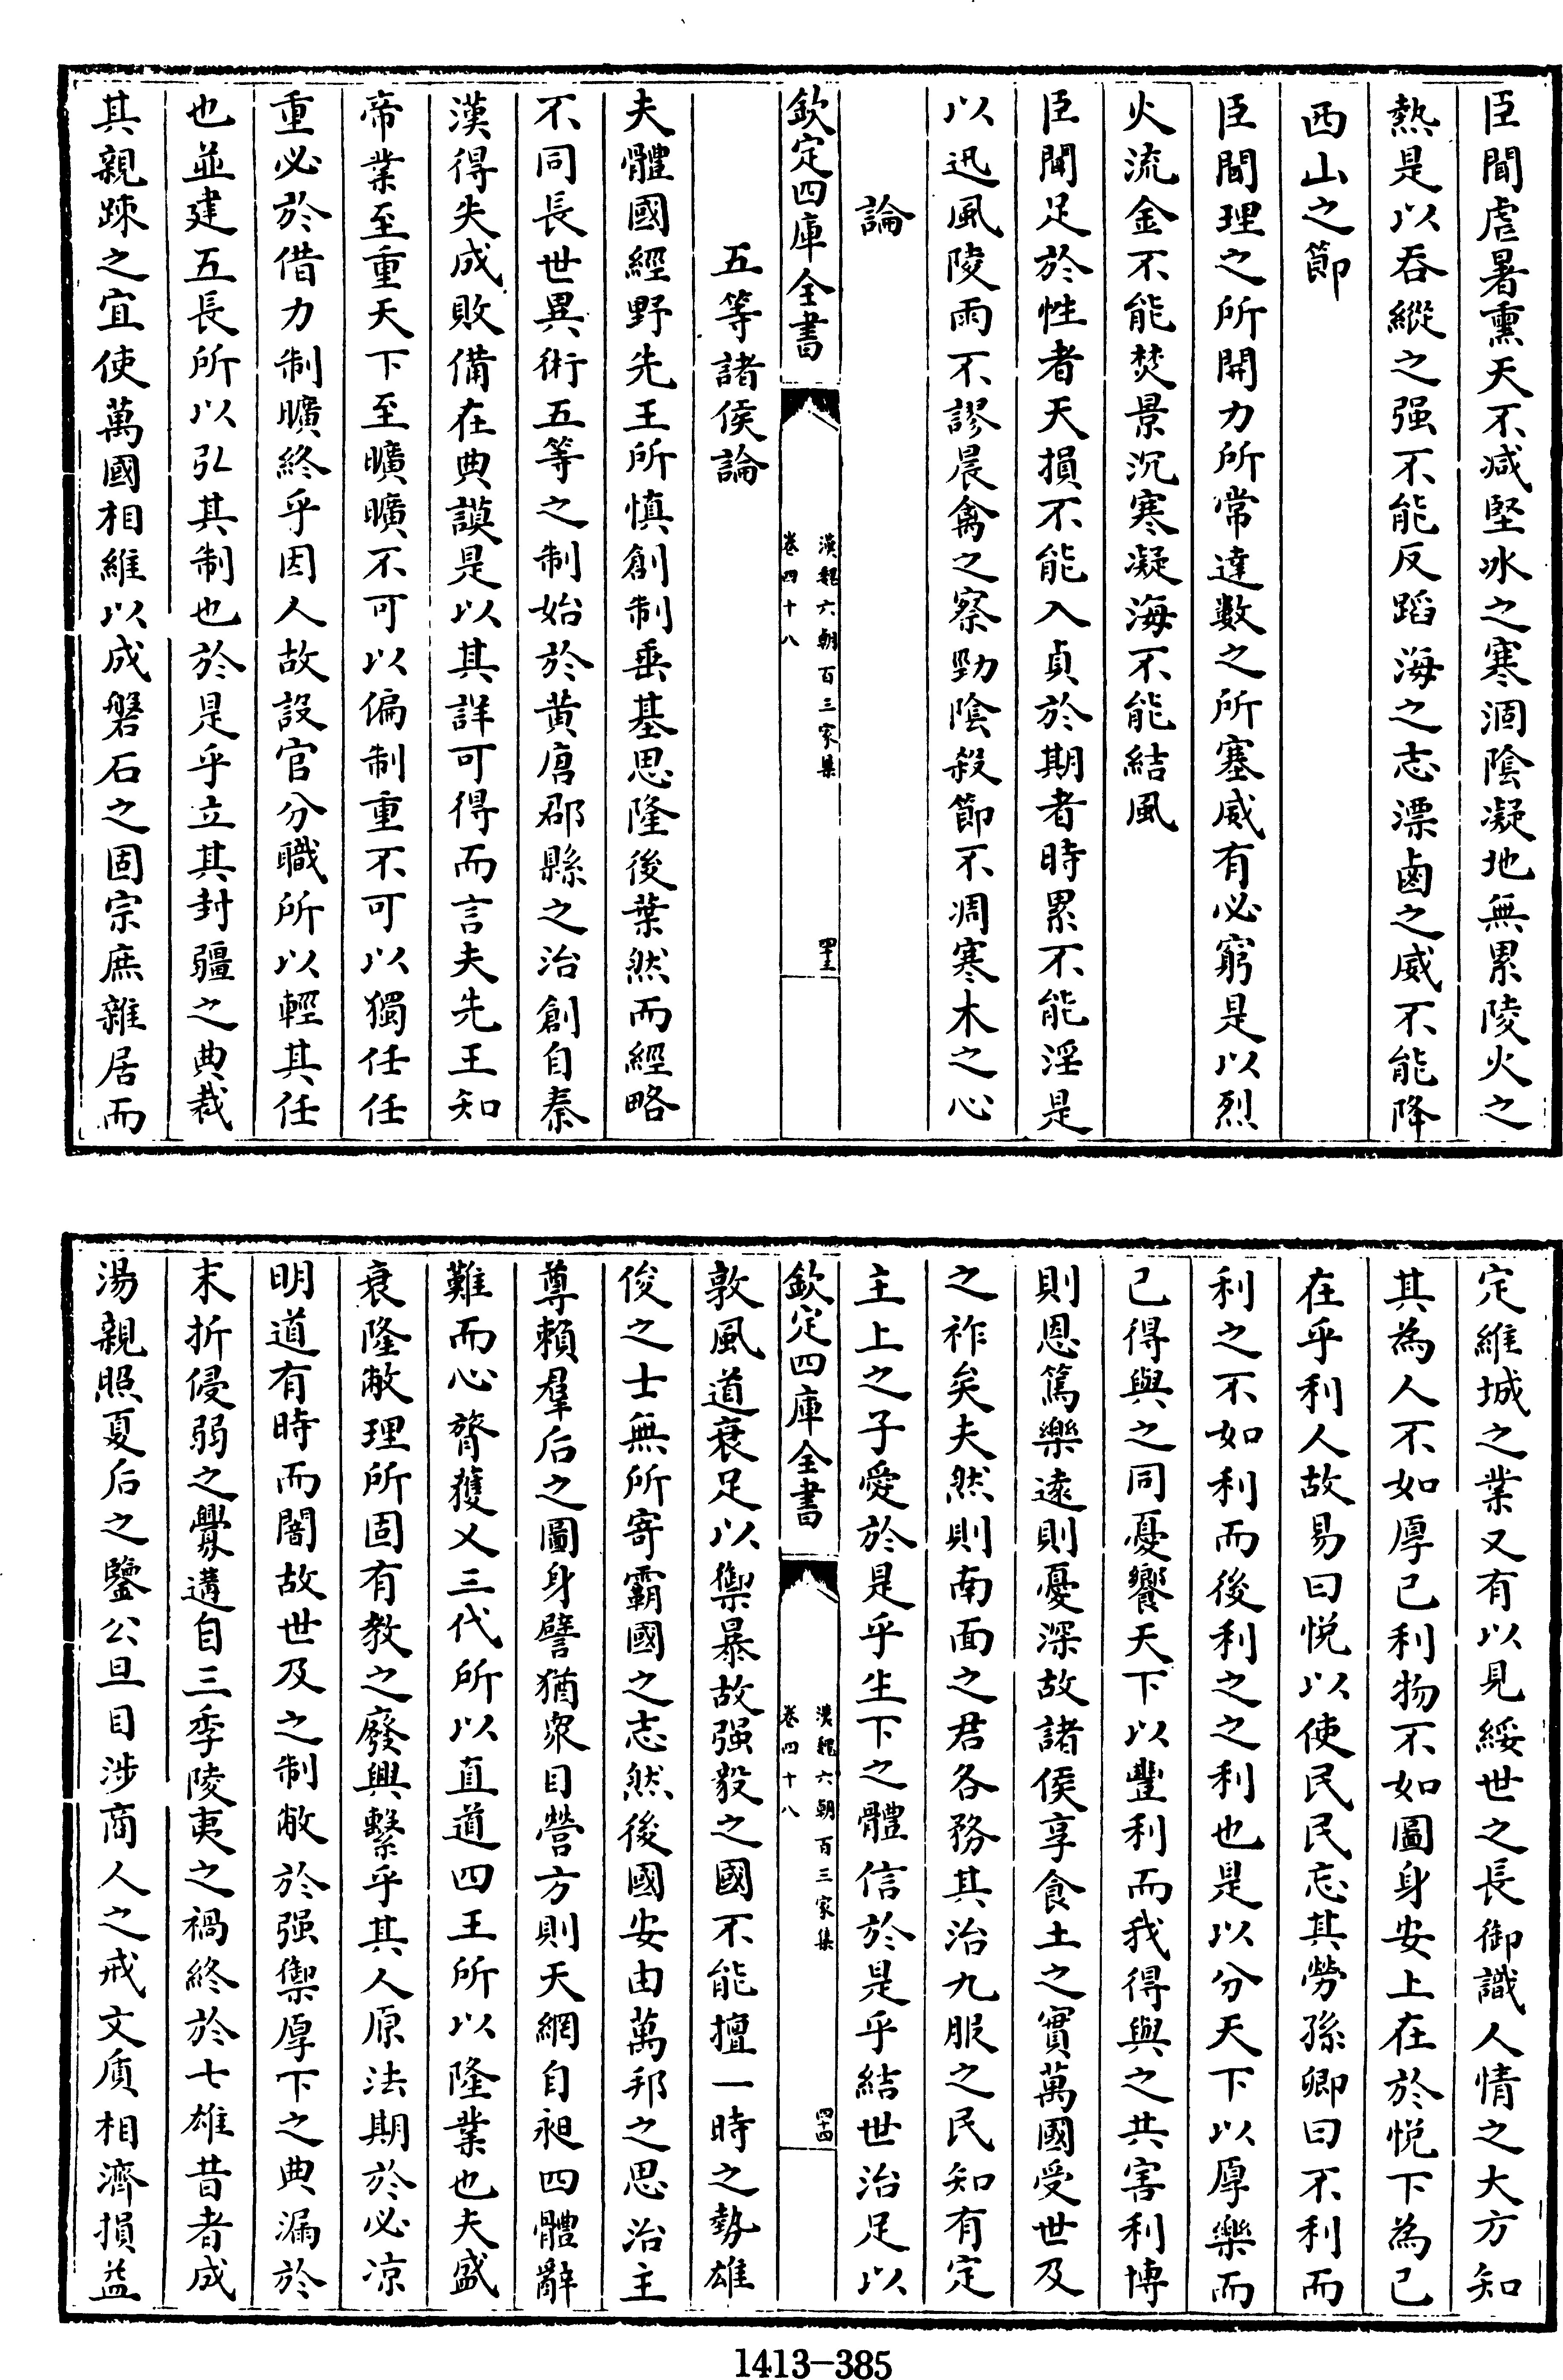 臣聞虐暑熏天不减堅冰之寒涸陰凝地無累陵火之
熱是以吞縱之强不能反蹈海之志漂鹵之威不能降
西山之節
臣聞理之所開力所常達數之所塞威有必窮是以烈
火流金不能焚景沉寒凝海不能結風
臣聞足於性者天損不能入貞於期者時累不能淫是
以迅風陵雨不謬晨禽之察勁陰殺節不凋寒木之心
論
欽定四庫全書
漢魏六朝百三家集
卷四十八
四十三
五等諸侯論
夫體國經野先王所慎創制垂基思隆後葉然而經略
不同長世異術五等之制始於黄唐郡縣之治創自秦
漢得失成敗備在典謨是以其詳可得而言夫先王知
帝業至重天下至曠曠不可以偏制重不可以獨任任
重必於借力制曠終乎因人故設官分職所以輕其任
也並建五長所以弘其制也於是乎立其封疆之典裁
其親踈之宜使萬國相維以成磐石之固宗庶雜居而
定維城之業又有以見綏世之長御識人情之大方知
其為人不如厚己利物不如圖身安上在於悦下為己
在乎利人故易曰悦以使民民忘其勞孫卿曰不利而
利之不如利而後利之之利也是以分天下以厚樂而
己得與之同憂饗天下以豐利而我得與之共害利博
則恩篤樂遠則憂深故諸侯享食土之實萬國受世及
之祚矣夫然則南面之君各務其治九服之民知有定
主上之子愛於是乎生下之體信於是乎結世治足以
欽定四庫全書
漢魏六朝百三家集
卷四十八
四十四
敦風道衰足以禦暴故强毅之國不能擅一時之勢雄
俊之士無所寄霸國之志然後國安由萬邦之思治主
尊賴羣后之圖身譬猶衆目營方則天網自昶四體辭
難而心膂獲乂三代所以直道四王所以隆業也夫盛
衰隆敝理所固有教之廢興繫乎其人原法期於必凉
明道有時而闇故世及之制敝於强禦厚下之典漏於
末折侵弱之釁遘自三季陵夷之禍終於七雄昔者成
湯親照夏后之鑒公旦目涉商人之戒文质相濟損益
1413-385